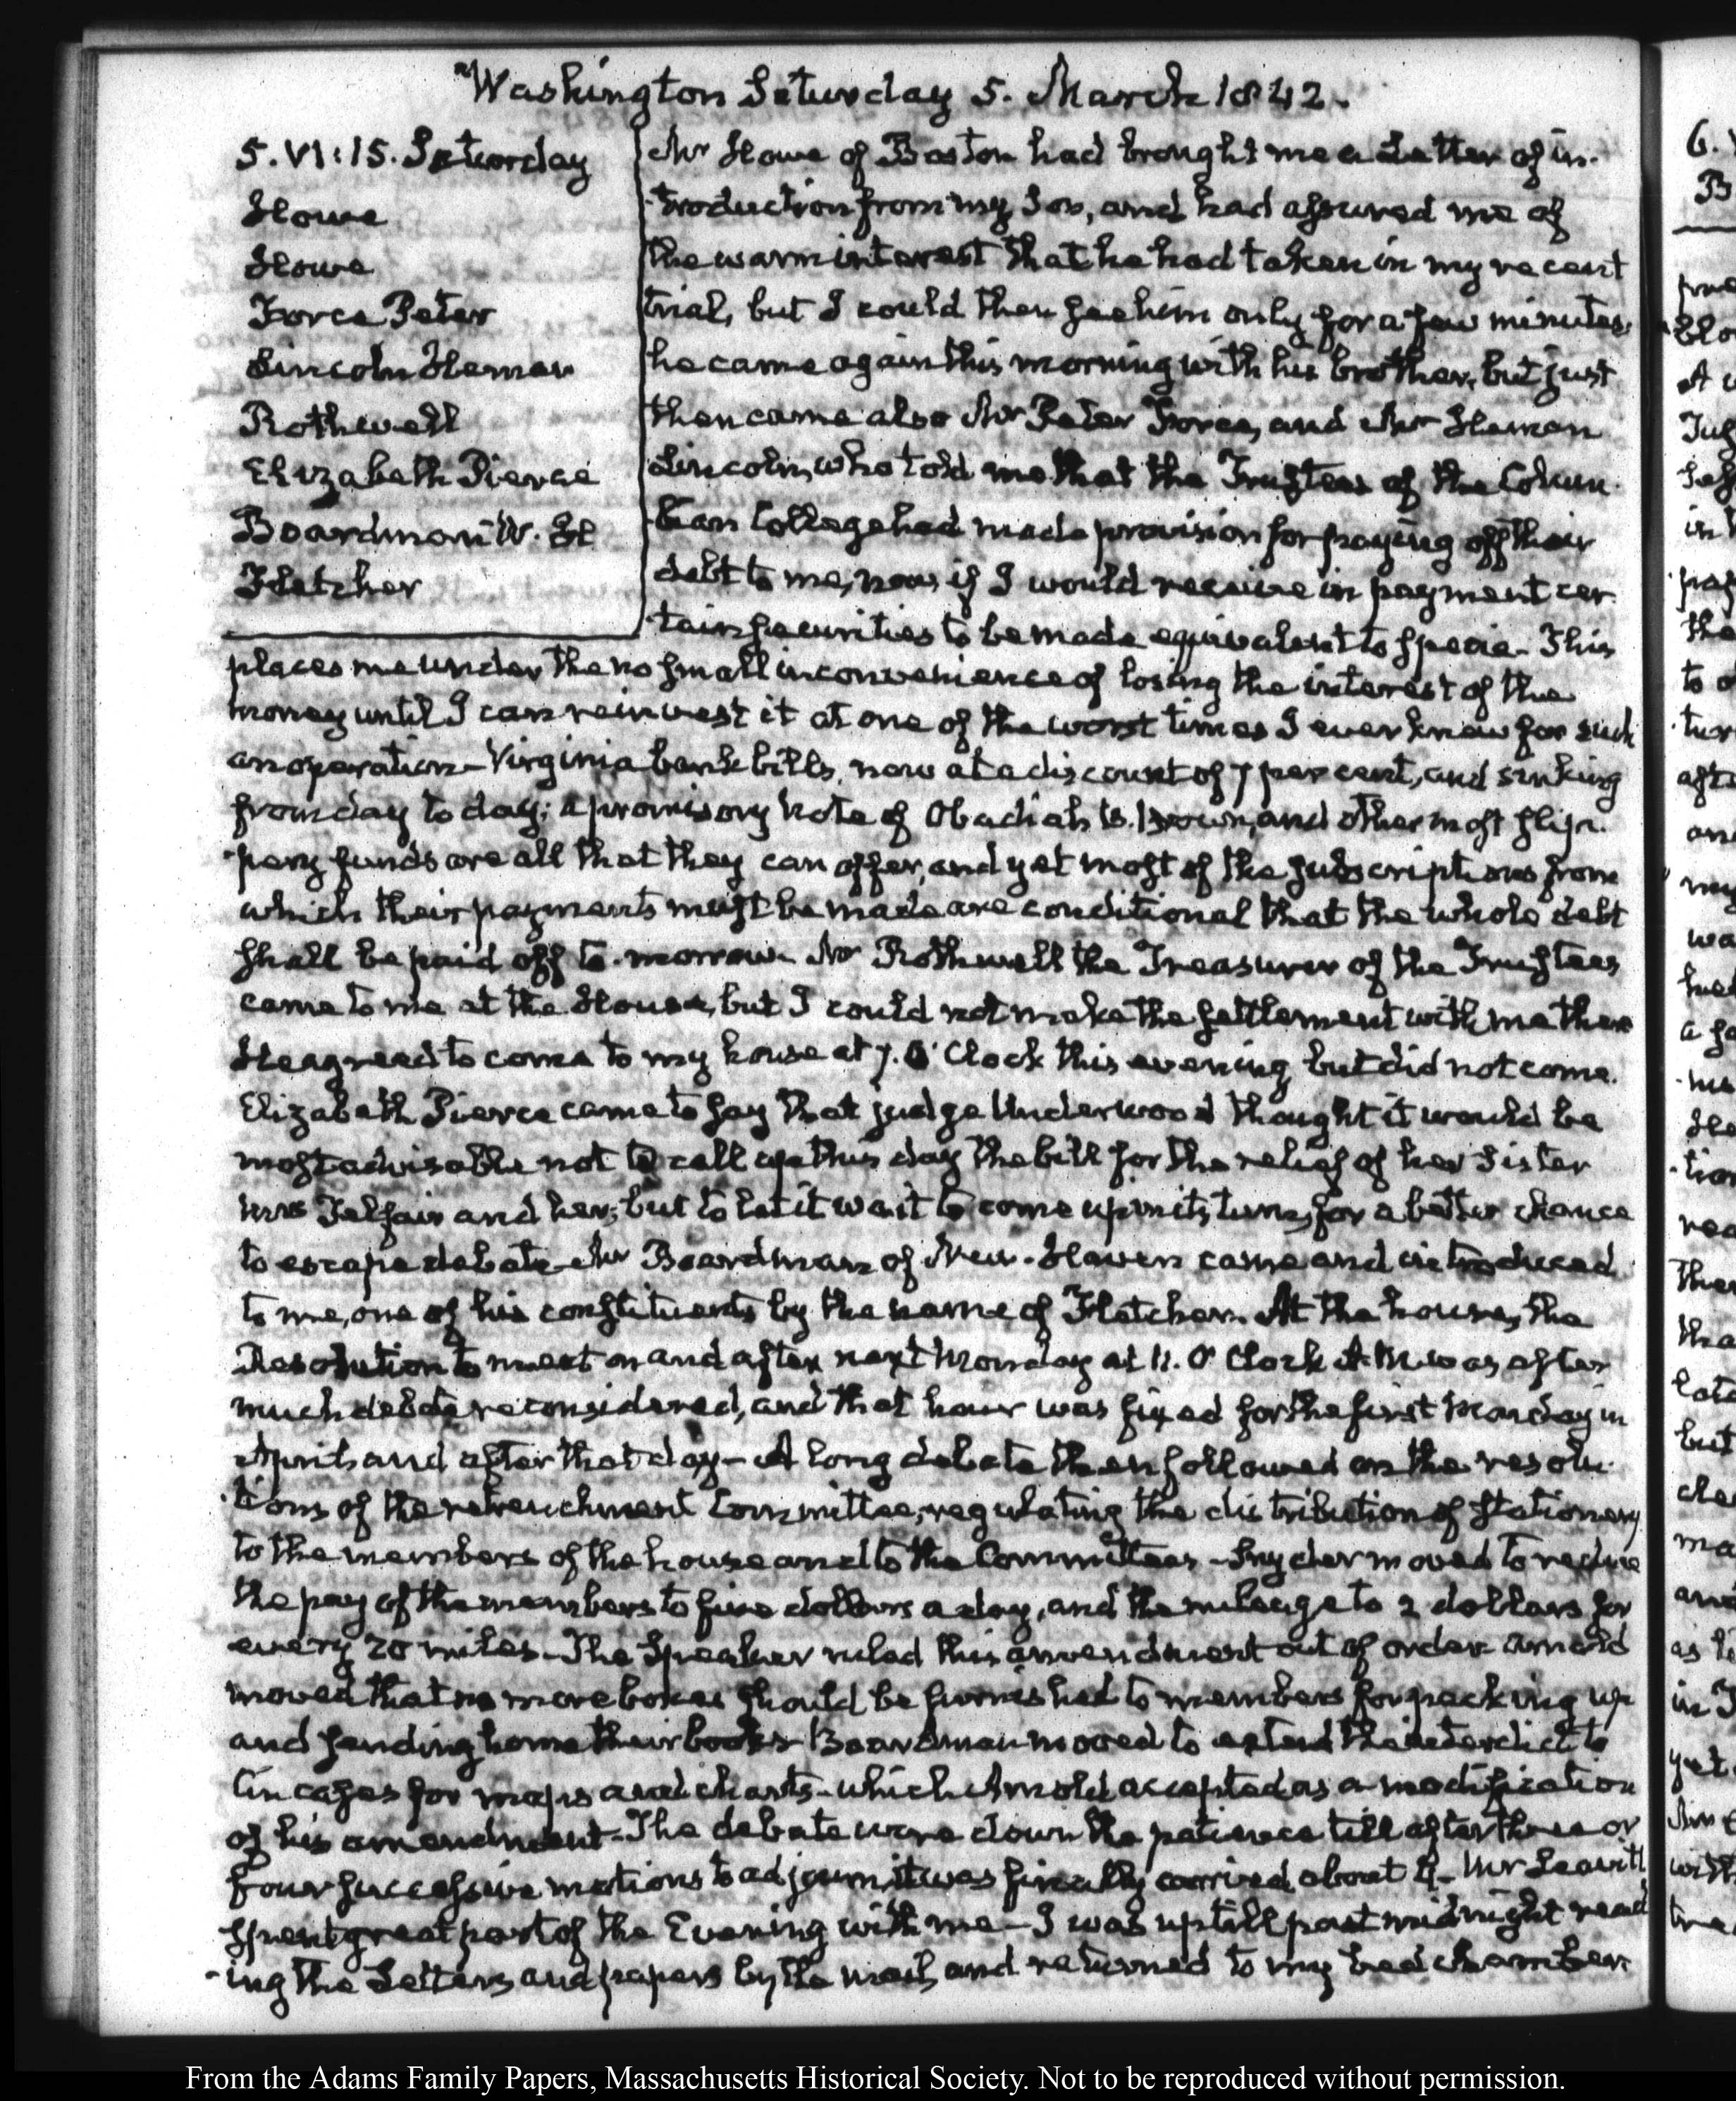 Washington Saturday 5. March 1842.
5. VI:15. Saturday
Howe
Howe
Force Peter
Lincoln Heman
Rothwell
Elizabeth Pierce
Boardman W. W.
Fletcher
Mr Howe of Boston had brought me a Letter of in-
troduction from my Son, and had assured me of
the warm interest that he had taken in my recent
trial, but I could then see him only for a few minutes.
he came again this morning with his brother, but just
then came also Mr Peter Force, and Mr Heman
Lincoln, who told me that the Trustees of the Colum-
bian College had made provision for paying off their
debt to me, now if I would receive in payment cer-
tain securities to be made equivalent to specie. This
places me under the no small inconvenience of losing the interest of the
money until I can reinvest it at one of the worst times I ever knew for such
an operation- Virginia bank bills, now at a discount of 7 per cent, and sinking
from day to day; a promissory Note of Obadiah B. Brown, and other most slip-
pery funds are all that they can offer, and yet most of the subscriptions from
which their payments must be made are conditional that the whole debt
shall be paid off to-morrow. Mr Rothwell the Treasurer of the Trustees
came to me at the House, but I could not make the settlement with me then
He agreed to come to my house at 7. O'Clock this evening but did not come.
Elizabeth Pierce came to say that judge Underwood thought it would be
most advisable not to call up this day the bill for the relief of her Sister
Mrs Telfair and her, but to let it wait to come up in its turn, for a better chance
to escape debate- Mr Boardman of New-Haven came and introduced
to me, one of his constituents by the name of Fletcher. At the house, the
Resolution to meet on and after next Monday at 11. O'Clock A.M. was after
much debate reconsidered, and that hour was fixed for the first Monday in
April, and after that day- A long debate then followed on the resolu-
tions of the retrenchment Committee, regulating the distribution of Stationery
to the members of the house and to the Committees- Snyder moved to reduce
the pay of the members to five dollars a day, and the mileage to 2 dollars for
every 20 miles- The Speaker ruled this amendment out of order. Arnold
moved that no more boxes should be furnished to members for packing up
and sending home their books- Boardman moved to extend the interdict to
tin cases for maps and charts- which Arnold accepted as a modification
of his amendment- The debate wore down the patience till after three or
four successive motions to adjourn it was finally carried about 4- Mr Leavitt
spent great part of the Evening with me- I was up till past midnight read-
-ing the Letters and papers by the mail, and returned to my bed chamber.
From the Adams Family Papers, Massachusetts Historical Society. Not to be reproduced without permission.